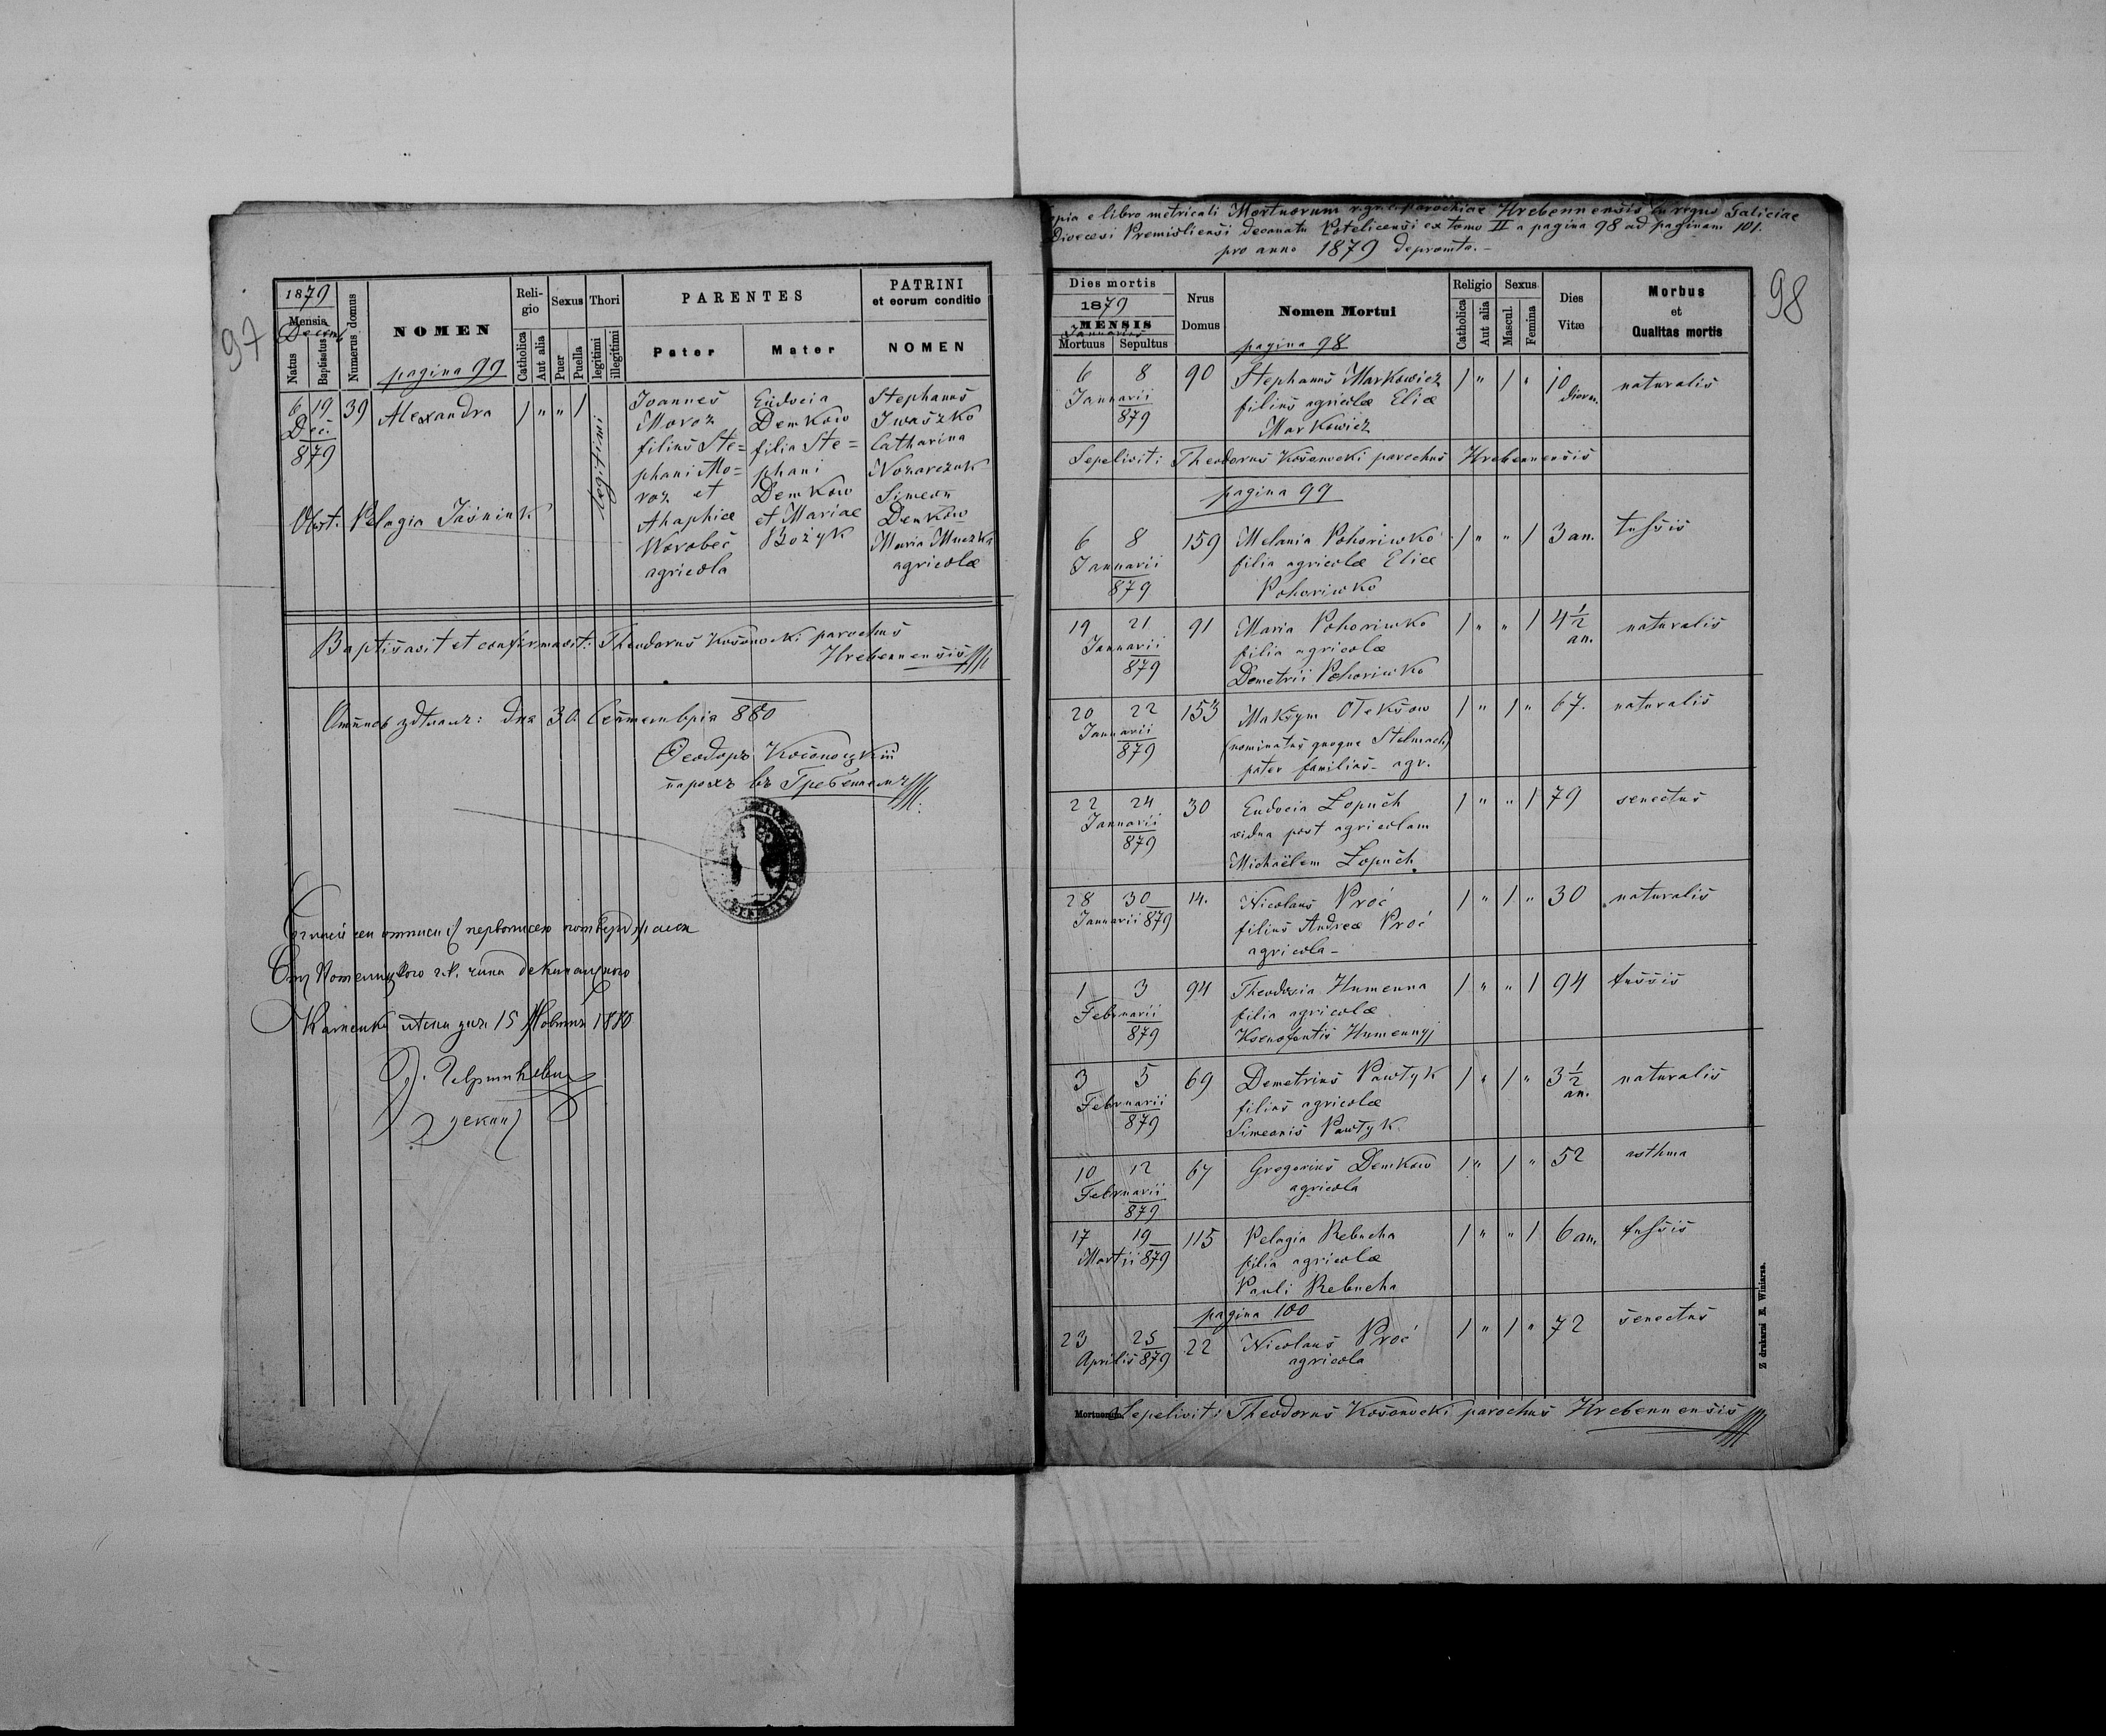 97
1879
Mensis
Decemb
Natus
Baptisatus
Numerus domus
NOMEN
pagina 99
Religio
Catholica
Aut alia
Sexus
Puer
Puella
Thori
legitimi
illegitimi
PARENTES
Pater
Mater
PATRINI
et eorum conditio
NOMEN
6 19 39 Alexandra 1 " " 1
Dec.
879
legitimi
Joannes
Moroz
filius Ste=
phani Mo=
roz et
Ahaphiæ
Worobec
agricola
Eudocia
Demkow
filia Ste=
phani
Demkow
et Mariae
Bożyk
Stephanus
Iwaszko
Catharina
Nozarczuk
Simeon
Demkow
Maria Muczka
agricolæ
Obst. Pelagia Jaśniuk
Baptisavit et confirmavit: Theodorus Kosonocki parochus
Hrebennensis
Отпись здѣланъ: Дня 30 Септемврія 880
Ѳеодоръ Косоноцкій
парохъ въ Гребенномъ
15 1880
декан
98
Copia e libro metricali Mortuorum r. gr. c. parochiae Hrebennensis in regno Galiciae
Dioecesi Premisliensi decanatu Potelicensi ex tomo II a pagina 98 ad paginam 101.
pro anno 1879 depromta.-
Dies mortis
1879
MENSIS
Januarius
Mortuus Sepultus
Nrus
Domus
Nomen Mortui
pagina 98
Religio
Catholica
Aut alia
Sexus
Mascul.
Femina
Dies
Vitæ
Morbus
et
Qualitas mortis
6 8 90 Stephanus Markowicz 1 " 1 " 10 naturalis
Januarii filius agricolæ Eliæ dierum.
879 Markowicz
Sepelivit: Theodorus Kosonocki parochus Hrebennensis
pagina 99
6 8 159 Melania Pohoriwko 1 " " 1 3 an. tussis
Januarii filia agricolæ Eliæ
879 Pohoriwko
19 21 91 Maria Pohoriwko 1 " " 1 4 1/2 naturalis
Januarii filia agricolæ an.
879 Demetrii Pohoriwko
20 22 153 Maksym Oleksow 1 " 1 " 67. naturalis
Januarii (nominatus quoque Stelmach)
879 pater familias- agr.
22 24 30 Eudocia Łopuch 1 " " 1 79 senectus
Januarii vidua post agricolam
879 Michaëlem Łopuch.
28 30 14. Nicolaus Proć 1 " 1 " 30 naturalis
Januarii 879 filius Andreæ Proć
agricola-
1 3 94 Theodosia Humenna 1 " " 1 94 tussis
Februarii filia agricolæ
879 Ksenofontis Humennyj
3 5 69 Demetrius Pawłyk 1 " 1 " 3 1/2 naturalis
Februarii filius agricolæ an.
879 Simeonis Pawłyk
10 12 67 Gregorius Demkow 1 " 1 " 52 asthma
Februarii agricola
879
17 19 115 Pelagia Rebucha 1 " " 1 6 an. tussis
Martii 879 filia agricolæ
Pauli Rebucha
pagina 100
23 25 22 Nicolaus Proć 1 " 1 " 72 senectus
Aprilis 879 agricola
Mortuorum. Sepelivit: Theodorus Kosonocki parochus Hrebennensis
Z drukarni E. Winiarza.